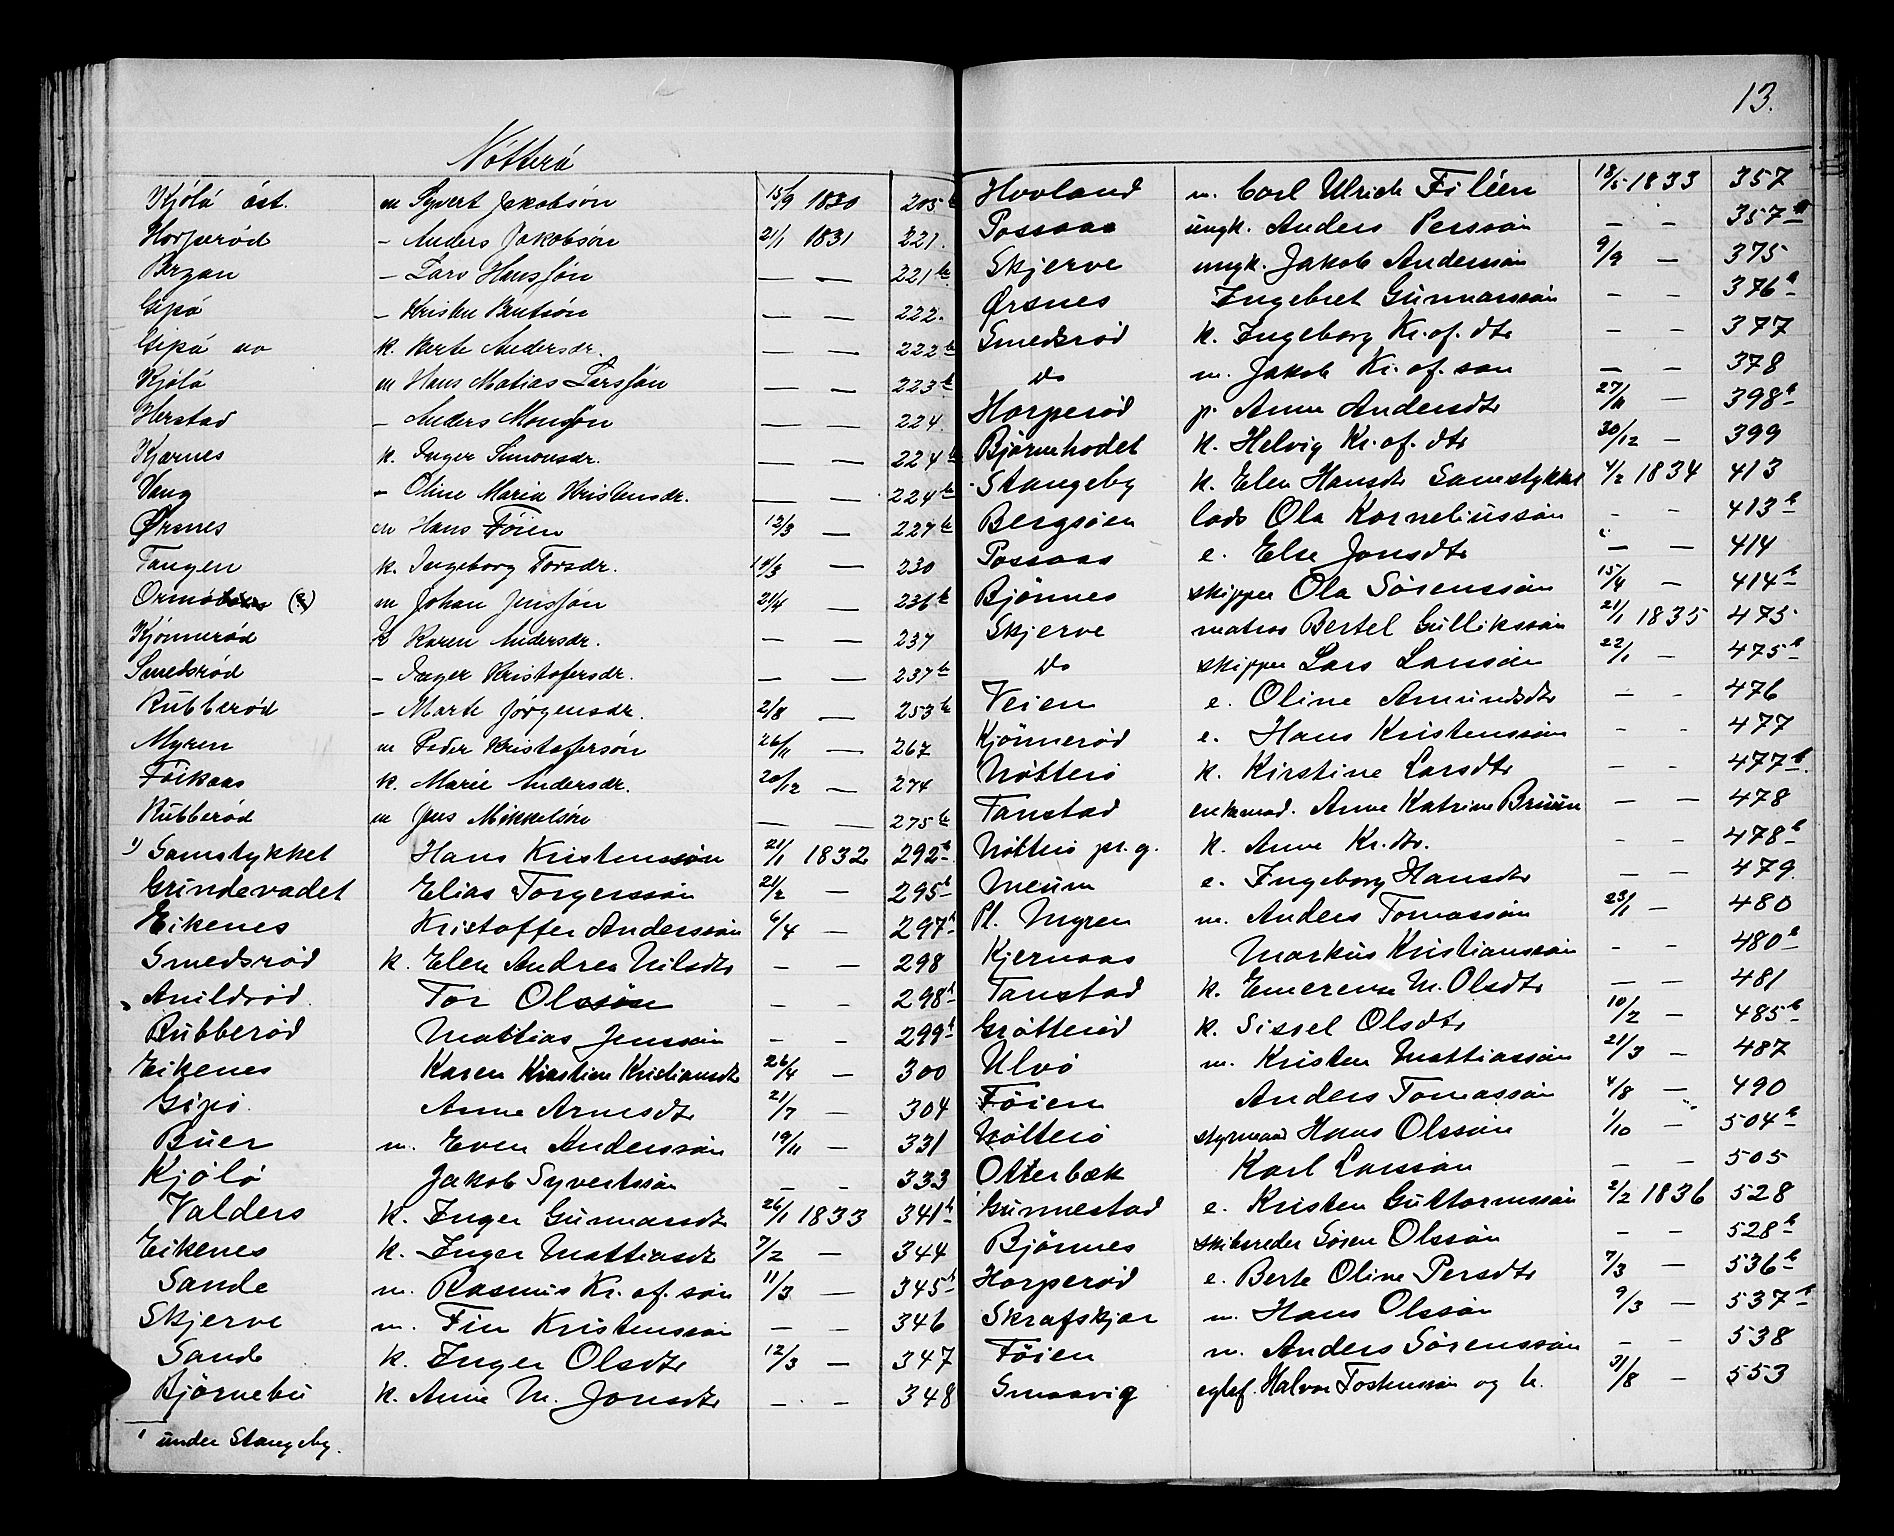 Nötterö
Kjölö öst. m Syvert Jakobsön 15/9 1830 205b
Horperød – Anders Jakobsön 21/1 1831 221.
Bryan – Lars Hanssön — — 221b
Gipö – Kristen Bentsön — — 222.
Gipö k. Berte Andersdr. — — 222b
Kjölö m Hans Matias Larssön — — 223b
Herstad – Anders Monssön — — 224.
Kjærnes k. Inger Simonsdr. — — 224b
Vang – Oline Maria Kristensdr. — — 224b
Ørsnes m Hans Föien 12/3 — 227b
Tangen k. Ingeborg Torsdr. 14/3 — 230
m Johan Jenssön 21/4 — 236b
Kjönnerød k Karen Andersdr. — — 237
Smedsrød – Inger Kristofersdr. — — 237b
Rubberød – Marte Jörgensdr. 2/8 — 253b
Myren m Peder Kristofersön 26/11 — 267
Föikaas k. Marie Andersdr. 20/12 — 274
Rubberød m Jens Mikkelsön — — 275b
1) Samstykket Hans Kristenssön 21/1 1832 292b
Grindevadet Elias Torgerssön 21/2 — 295b
Eikenes Kristoffer Anderssön 6/4 — 297b
Smedsrød k. Elen Andrea Nilsdtr – — 298
Anildrød. Tor Olssön – – 298b
Rubberød Mattias Jenssön – – 299b
Eikenes Karen Kirstine Kristiansdtr 26/4 — 300
Gipö. Anne Arnesdtr 21/7 — 304
Buer m. Even Anderssön 19/11 — 331
Kjölö Jakob Syvertssön – – 333
Valders k. Inger Gunnarsdtr 26/1 1833 341b
Eikenes k. Inger Mattiasdtr 7/2 — 344
Sande m. Rasmus Kr.of.sön 11/3 — 345b
Skjerve m. Fin Kristenssön – – 346
Sande k. Inger Olsdtr 12/3 — 347
Björnebu k. Anne M. Jonsdtr – – 348
1 under Stangeby.
13.
Hovland m. Carl Ulrich Filéen 18/5 1833 357
Possaas ungk. Anders Perssön – – 357b
Skjerve ungk. Jakob Anderssön 9/9 — 375
Ørsnes Ingebret Gunnarssön – – 376b
Smedsrød k. Ingeborg Kr.of.dtr – – 377
Do m. Jakob Kr.of.sön — — 378
Horperød p. Anne Andersdtr 27/11 — 398b
Björnehodet k. Helvig Kr.of.dtr 30/12 – 399
Stangeby k. Elen Hansdtr Samstykket 4/2 1834 413
Bergsöen lods Ola Korneliussön – – 413b
Possaas e. Else Jonsdtr — — 414
Björnnes skipper Ola Sörenssön 15/4 — 414b
Skjerve matros Bertel Gulliksson 21/1 1835 475
Do skipper Lars Larssön 22/1 — 475b
Veien e. Oline Amundsdtr – – 476
Kjönnerød e. Hans Kristenssön – – 477
Nötterö k. Kirstine Larsdtr – – 477b.
Tanstad enkemad. Anne Katrine Bruun — — 478
Nötterö pr.g. k. Anne Kr.dtr. – – 478b
Meum e. Ingeborg Hansdtr — — 479.
Pl. Myren m. Anders Tomassön 23/1 — 480
Kjernaas Markus Kristianssön – – 480b
Tanstad k. Emerense M. Olsdtr — — 481
Grötteröd k. Sissel Olsdtr 10/2 — 485b
Ulvö m. Kristen Mattiassön 21/3 — 487
Föien Anders Tomassön 4/8 — 490
Nötterö styrmand Hans Olssön 1/10 – 504b
Otterbæk Karl Larssön – – 505
Gunnestad e. Kristen Guttormssön 2/2 1836 528
Björnnes skibsreder Sören Olssön – – 528b
Horperød e. Berte Oline Persdtr 7/3 — 536b
Skrafskjær m. Hans Olssön 9/3 — 537b
Föien m. Anders Sörenssön – – 538
Smaavig egtef. Halvor Tostenssön og h. 31/8 – 553